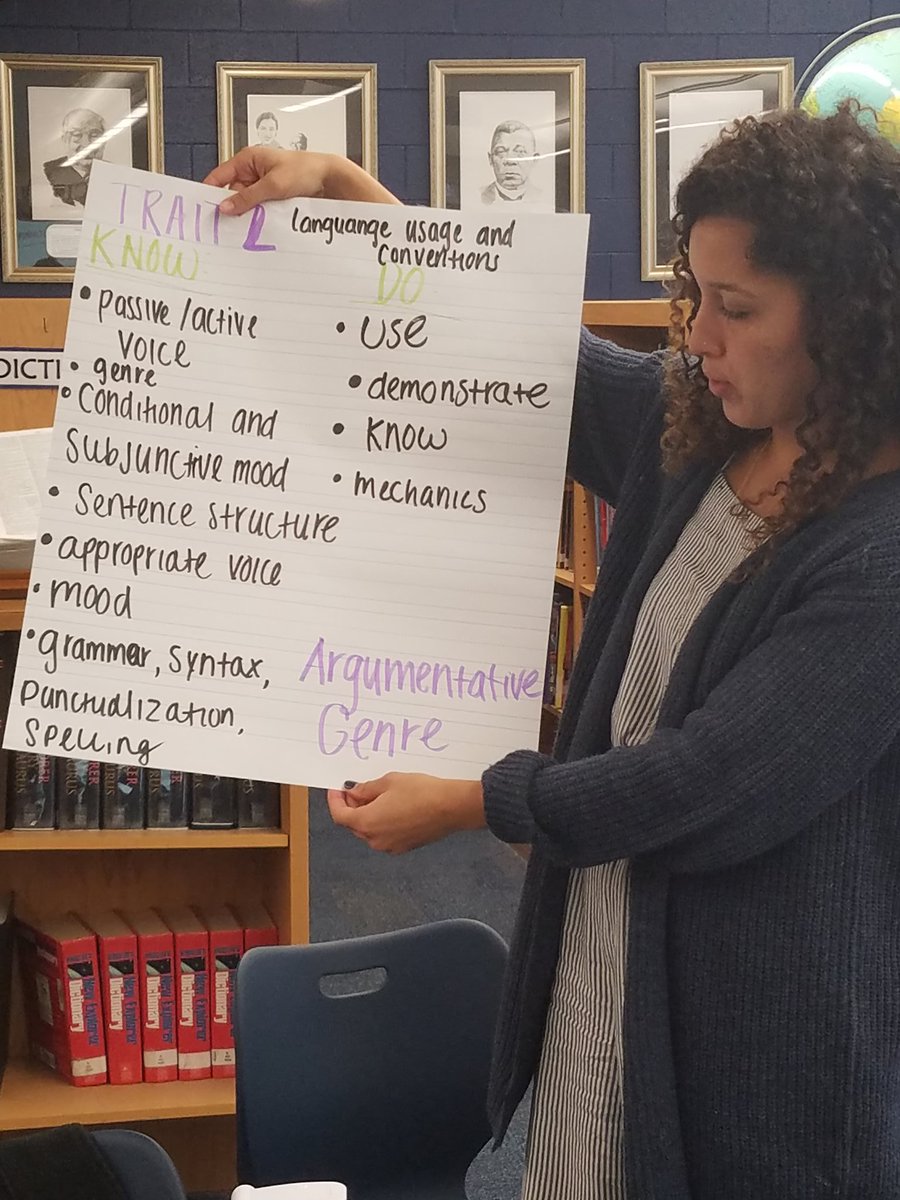 TRAIT 2 languange usage and
conventions
KNOW
• passive/active
voice
• genre
• Conditional and
Subjunctive mood
• Sentence structure
• appropriate voice
• mood
• grammar, syntax,
punctualization,
spelling
DO
• use
• demonstrate
• know
• mechanics
Argumentative
Genre
DICTI
New Explorer
Dictionary
New Explorer
Dictionary
New Explorer
Dictionary
New Explorer
Dictionary
New Explorer
Dictionary